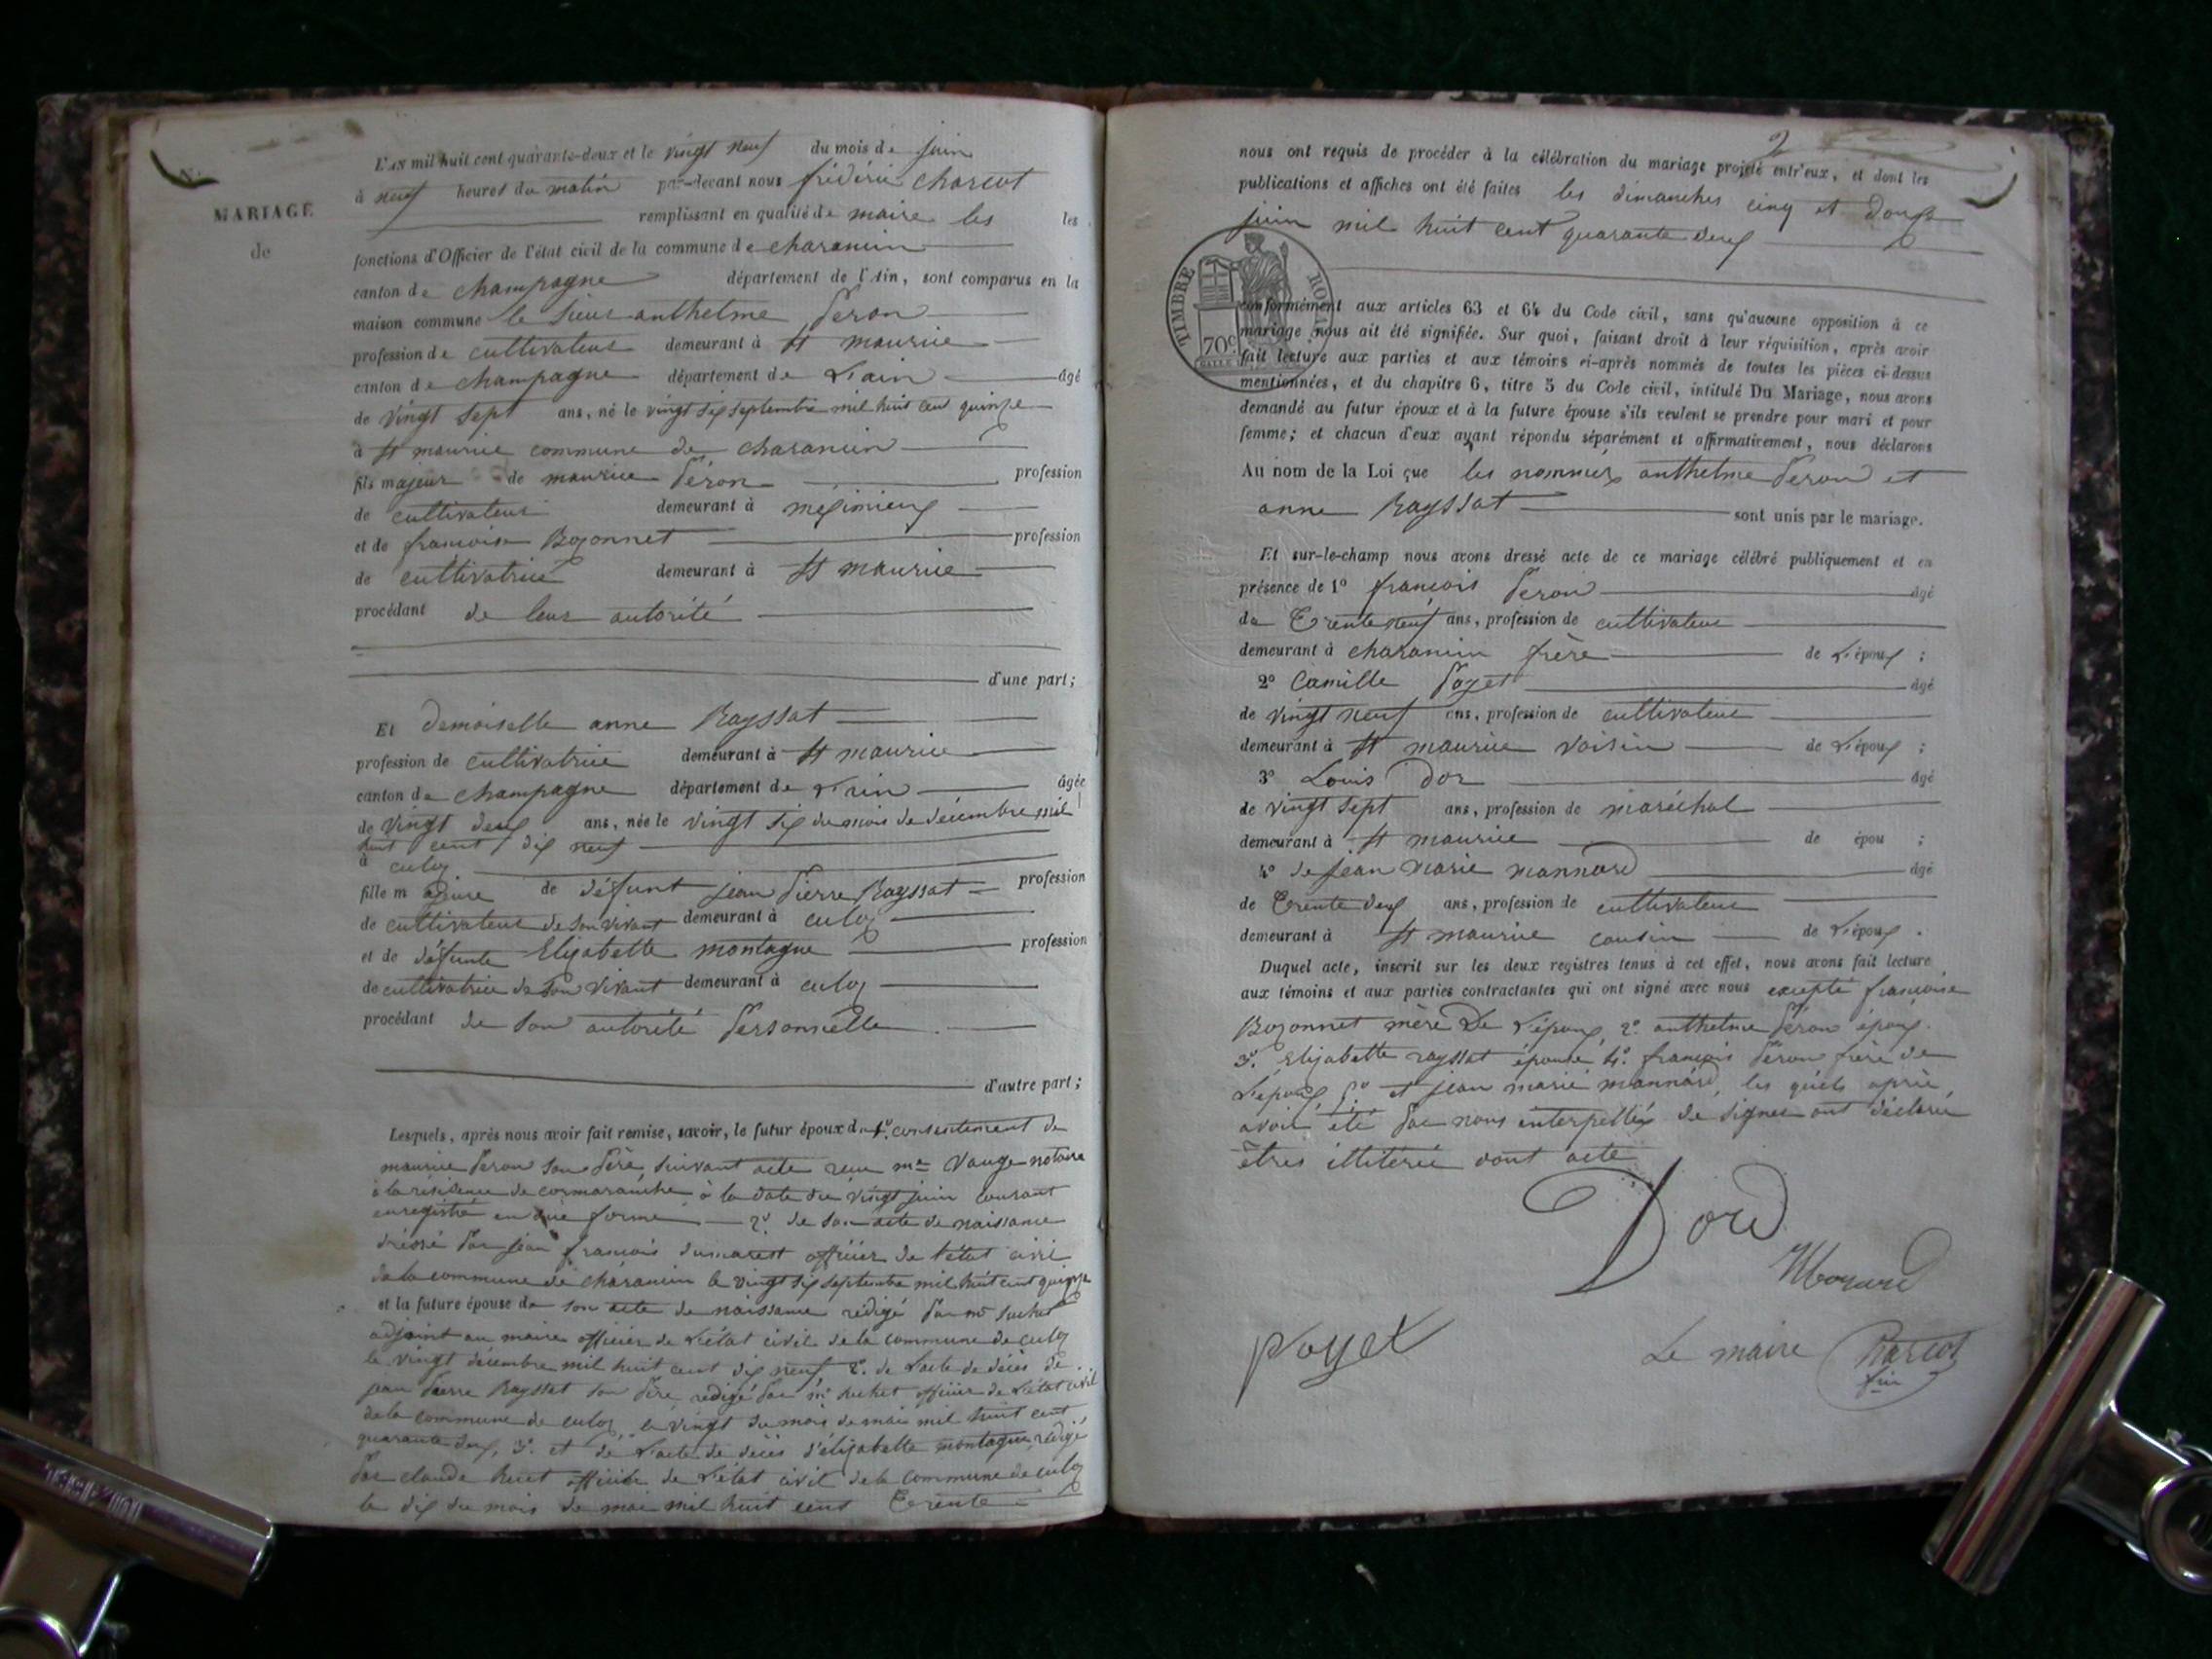 MARIAGE
de
L'AN mil huit cent quarante-deux et le vingt neuf du mois de juin
à neuf heures du matin par-devant nous frédéric charcot
remplissant en qualité de maire les les
fonctions d'Officier de l'état civil de la commune de charancin
canton de champagne département de l'Ain, sont comparus en la
maison commune le sieur anthelme Peron
profession de cultivateur demeurant à st maurice
canton de champagne département de L'ain âgé
de vingt sept ans, né le vingt six septembre mil huit cent quinze
à st maurice commune de charancin
fils majeur de maurice Péron profession
de cultivateur demeurant à
et de francoise Bozonnet profession
de cultivatrice demeurant à st maurice
procédant de leur autorité
d'une part;
Et demoiselle anne Rayssat
profession de cultivatrice demeurant à st maurice
canton de champagne département de L'ain âgée
de vingt deux ans, née le vingt six du mois de décembre mil
huit cent dix neuf
à culoz
fille majeure de défunt jean Pierre Rayssat profession
de cultivateur de son vivant demeurant à culoz
et de défunte Elizabette montagne profession
de cultivatrice de son vivant demeurant à culoz
procédant de son autorité Personnelle
d'autre part;
Lesquels, après nous avoir fait remise, savoir, le futur époux du 1º consentement de
maurice Peron son Père, suivant acte reçu me Vauge notaire
à la résidence de cormaranche à la date du vingt juin courant
enregistré en due forme 2º de son acte de naissance
dréssé Par jean françois dumarest officier de l'état civil
de la commune de charancin le vingt six septembre mil huit cent quinze
et la future épouse de son acte de naissance rédigé Par mr
adjoint au maire officier de L'état civil de la commune de culoz
le vingt décembre mil huit cent dix neuf 2º de L'acte de décès de
jean Pierre Rayssat son Père, redigé Par mr officier de L'état civil
de la commune de culoz, le vingt du mois de mai mil huit cent
quarante deux, 3º et de L'acte de décès d'élizabette montagne, redigé
Par claude officier de L'état civil de la commune de culoz
le dix du mois de mai mil huit cent Trente
2
nous ont requis de procéder à la célébration du mariage projeté entr'eux, et dont les
publications et affiches ont été faites les dimanches cinq et douze
juin mil huit cent quarante deux
TIMBRE ROYAL
70c
conformément aux articles 63 et 64 du Code civil, sans qu'aucune opposition à ce
mariage nous ait été signifiée. Sur quoi, faisant droit à leur réquisition, après avoir
fait lecture aux parties et aux témoins ci-après nommés de toutes les pièces ci-dessus
mentionnées, et du chapitre 6, titre 5 du Code civil, intitulé Du Mariage, nous avons
demandé au futur époux et à la future épouse s'ils veulent se prendre pour mari et pour
femme; et chacun d'eux ayant répondu séparément et affirmativement, nous déclarons
Au nom de la Loi que les nommés anthelme Peron et
anne Rayssat sont unis par le mariage.
Et sur-le-champ nous avons dressé acte de ce mariage célébré publiquement et en
présence de 1º françois Peron âgé
de Trente neuf ans, profession de cultivateur
demeurant à charancin frère de L'époux ;
2º Camille Poyet âgé
de vingt neuf ans, profession de cultivateur
demeurant à st maurice voisin de L'époux ;
3º Louis Dor âgé
de vingt sept ans, profession de maréchal
demeurant à st maurice de épou ;
4º de jean Marie mannard âgé
de Trente deux ans, profession de cultivateur
demeurant à st maurice cousin de L'époux .
Duquel acte, inscrit sur les deux registres tenus à cet effet, nous avons fait lecture
aux témoins et aux parties contractantes qui ont signé avec nous excepté françoise
Bozonnet mère De L'époux, 2º anthelme Péron époux.
3º Elizabette rayssat épouse 4º françois Peron frère de
L'époux, 5º et jean marie mannard, les quels après
avoir été Par nous interpellés de signer ont déclaré
êtres illitérés dont acte
Dord
Poyet
Le maire Charcot